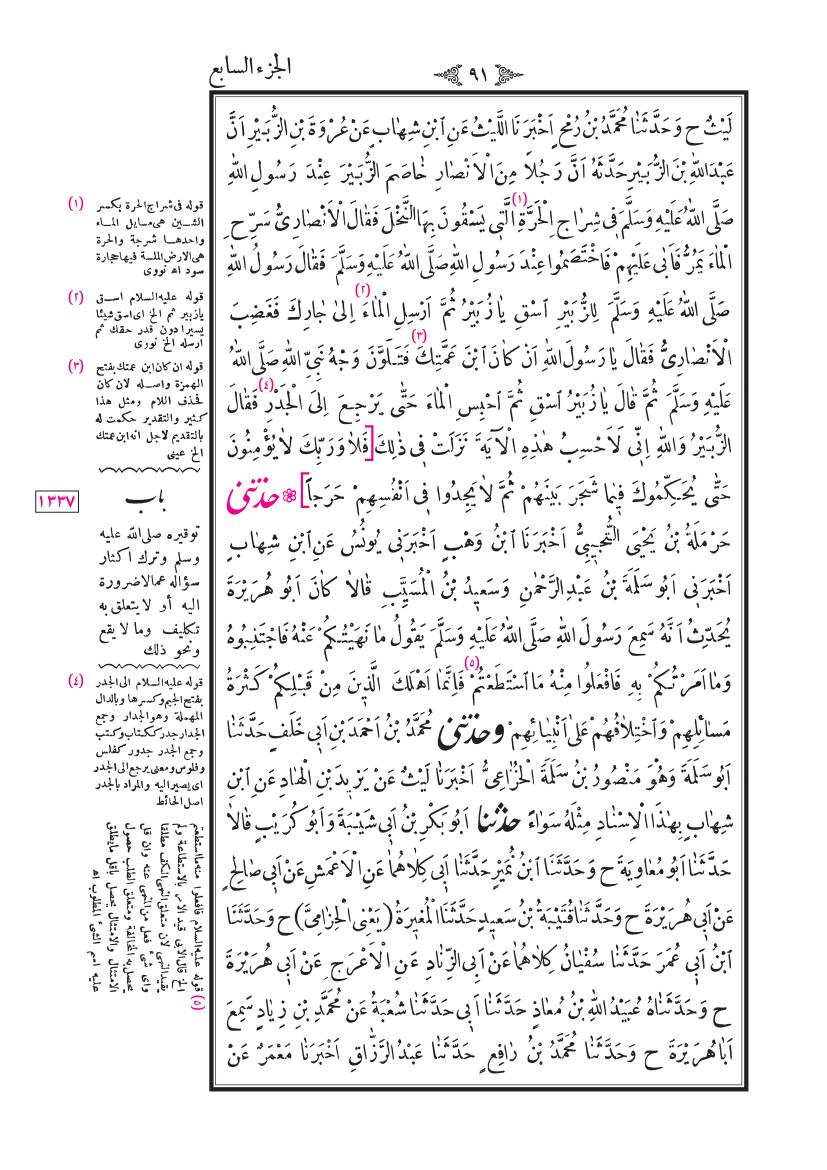 الجزء السابع
٩١
لَيْثٌ ح وَحَدَّثَنَا مُحَمَّدُ بْنُ رُمْحٍ اَخْبَرَنَا اللَّيْثُ عَنِ ابْنِ شِهَابٍ عَنْ عُرْوَةَ بْنِ الزُّبَيْرِ اَنَّ
عَبْدَاللّٰهِ بْنَ الزُّبَيْرِ حَدَّثَهُ اَنَّ رَجُلًا مِنَ الْاَنْصَارِ خَاصَمَ الزُّبَيْرَ عِنْدَ رَسُولِ اللّٰهِ
صَلَّى اللّٰهُ عَلَيْهِ وَسَلَّمَ فِى شِرَاجِ الْحَرَّةِ (١) الَّتِى يَسْقُونَ بِهَا النَّخْلَ فَقَالَ الْاَنْصَارِىُّ سَرِّحِ
الْمَاءَ يَمُرُّ فَاَبٰى عَلَيْهِمْ فَاخْتَصَمُوا عِنْدَ رَسُولِ اللّٰهِ صَلَّى اللّٰهُ عَلَيْهِ وَسَلَّمَ فَقَالَ رَسُولُ اللّٰهِ
صَلَّى اللّٰهُ عَلَيْهِ وَسَلَّمَ لِلزُّبَيْرِ اَسْقِ يَازُبَيْرُ ثُمَّ اَرْسِلِ الْمَاءَ (٢) اِلٰى جَارِكَ فَغَضِبَ
الْاَنْصَارِىُّ فَقَالَ يَا رَسُولَ اللّٰهِ اَنْ كَانَ ابْنَ عَمَّتِكَ (٣) فَتَلَوَّنَ وَجْهُ نَبِىِّ اللّٰهِ صَلَّى اللّٰهُ
عَلَيْهِ وَسَلَّمَ ثُمَّ قَالَ يَازُبَيْرُ اَسْقِ ثُمَّ احْبِسِ الْمَاءَ حَتّٰى يَرْجِعَ اِلَى الْجَدْرِ (٤) فَقَالَ
الزُّبَيْرُ وَاللّٰهِ اِنِّى لَاَحْسِبُ هٰذِهِ الْآيَةَ نَزَلَتْ فِى ذٰلِكَ [فَلَا وَرَبِّكَ لَا يُؤْمِنُونَ
حَتّٰى يُحَكِّمُوكَ فِيمَا شَجَرَ بَيْنَهُمْ ثُمَّ لَا يَجِدُوا فِى اَنْفُسِهِمْ حَرَجاً] ❁ حَدَّثَنِى
حَرْمَلَةُ بْنُ يَحْيَى التُّجِيبِىُّ اَخْبَرَنَا ابْنُ وَهْبٍ اَخْبَرَنِى يُونُسُ عَنِ ابْنِ شِهَابٍ
اَخْبَرَنِى اَبُو سَلَمَةَ بْنُ عَبْدِالرَّحْمٰنِ وَسَعِيدُ بْنُ الْمُسَيَّبِ قَالَا كَانَ اَبُو هُرَيْرَةَ
يُحَدِّثُ اَنَّهُ سَمِعَ رَسُولَ اللّٰهِ صَلَّى اللّٰهُ عَلَيْهِ وَسَلَّمَ يَقُولُ مَا نَهَيْتُكُمْ عَنْهُ فَاجْتَنِبُوهُ
وَمَا اَمَرْتُكُمْ بِهِ فَافْعَلُوا مِنْهُ مَا اسْتَطَعْتُمْ (٥) فَاِنَّمَا اَهْلَكَ الَّذِينَ مِنْ قَبْلِكُمْ كَثْرَةُ
مَسَائِلِهِمْ وَاخْتِلَافُهُمْ عَلٰى اَنْبِيَائِهِمْ وَحَدَّثَنِى مُحَمَّدُ بْنُ اَحْمَدَ بْنِ اَبِى خَلَفٍ حَدَّثَنَا
اَبُو سَلَمَةَ وَهُوَ مَنْصُورُ بْنُ سَلَمَةَ الْخُزَاعِىُّ اَخْبَرَنَا لَيْثٌ عَنْ يَزِيدَ بْنِ الْهَادِ عَنِ ابْنِ
شِهَابٍ بِهٰذَا الْاِسْنَادِ مِثْلَهُ سَوَاءً حَدَّثَنَا اَبُو بَكْرِ بْنُ اَبِى شَيْبَةَ وَاَبُو كُرَيْبٍ قَالَا
حَدَّثَنَا اَبُو مُعَاوِيَةَ ح وَحَدَّثَنَا ابْنُ نُمَيْرٍ حَدَّثَنَا اَبِى كِلَاهُمَا عَنِ الْاَعْمَشِ عَنْ اَبِى صَالِحٍ
عَنْ اَبِى هُرَيْرَةَ ح وَحَدَّثَنَا قُتَيْبَةُ بْنُ سَعِيدٍ حَدَّثَنَا الْمُغِيرَةُ (يَعْنِى الْحِزَامِىَّ) ح وَحَدَّثَنَا
ابْنُ اَبِى عُمَرَ حَدَّثَنَا سُفْيَانُ كِلَاهُمَا عَنْ اَبِى الزِّنَادِ عَنِ الْاَعْرَجِ عَنْ اَبِى هُرَيْرَةَ
ح وَحَدَّثَنَاهُ عُبَيْدُ اللّٰهِ بْنُ مُعَاذٍ حَدَّثَنَا اَبِى حَدَّثَنَا شُعْبَةُ عَنْ مُحَمَّدِ بْنِ زِيَادٍ سَمِعَ
اَبَا هُرَيْرَةَ ح وَحَدَّثَنَا مُحَمَّدُ بْنُ رَافِعٍ حَدَّثَنَا عَبْدُ الرَّزَّاقِ اَخْبَرَنَا مَعْمَرٌ عَنْ
(١) قوله فى شراج الحرة بكسر
الشين هى مسايل الماء
واحدها شرجة والحرة
هى الارض الملسة فيها حجارة
سود اه نووى
(٢) قوله عليه السلام اسق
يازبير ثم الخ اى اسق شيئا
يسيرا دون قدر حقك ثم
ارسله الخ نووى
(٣) قوله ان كان ابن عمتك بفتح
الهمزة واصله لان كان
فحذف اللام ومثل هذا
كثير والتقدير حكمت له
بالتقديم لاجل انه ابن عمتك
الخ عينى
١٣٣٧
باب
توقيره صلى الله عليه
وسلم وترك اكثار
سؤاله عما لا ضرورة
اليه أو لا يتعلق به
تكليف وما لا يقع
ونحو ذلك
(٤) قوله عليه السلام الى الجدر
بفتح الجيم وكسرها وبالدال
المهملة وهو الجدار وجمع
الجدار جدر ككتاب وكتب
وجمع الجدر جدور كفلس
وفلوس ومعنى يرجع الى الجدر
اى يصير اليه والمراد بالجدر
اصل الحائط
(٥) قوله عليه السلام فافعلوا منه ما استطعتم
الخ قال الابى قيد الامر بالاستطاعة ولم
يقيد النهى لان متعلق النهى الكف مطلقا
واى شىء فعل من المنهى عنه وان قل
يحصل به المخالفة ومتعلق الطلب حصول
الامتثال والامتثال يحصل باقل ما يطلق
عليه اسم الشىء المطلوب اه